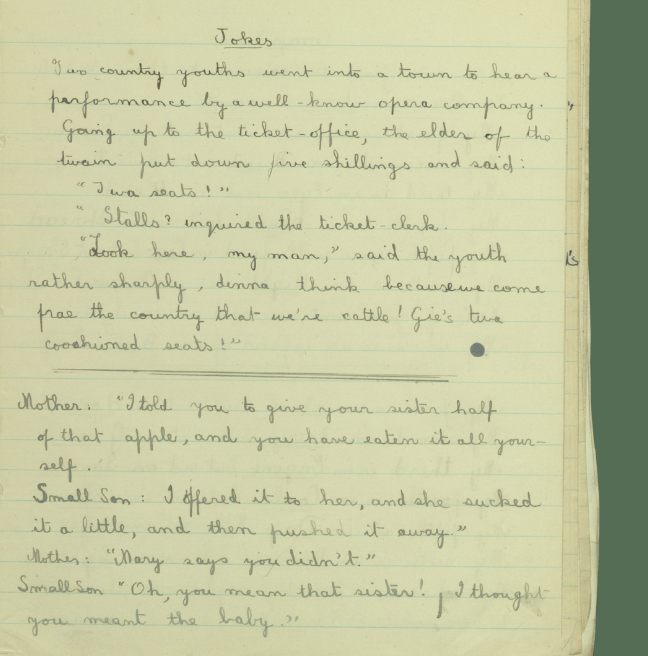 Jokes
Two country youths went into a town to hear a
performance by a well-know opera company.
Going up to the ticket-office, the elder of the
twain put down five shillings and said:
"Twa seats!"
"Stalls? inquired the ticket-clerk.
"Look here, my man," said the youth
rather sharply, dinna think because we come
frae the country that we're cattle! Gie's twa
cooshioned seats!"
Mother. "I told you to give your sister half
of that apple, and you have eaten it all your-
self.
Small Son: I offered it to her, and she sucked
it a little, and then pushed it away."
Mother: "Mary says you didn't."
Small Son "Oh, you mean that sister! I thought
you meant the baby."